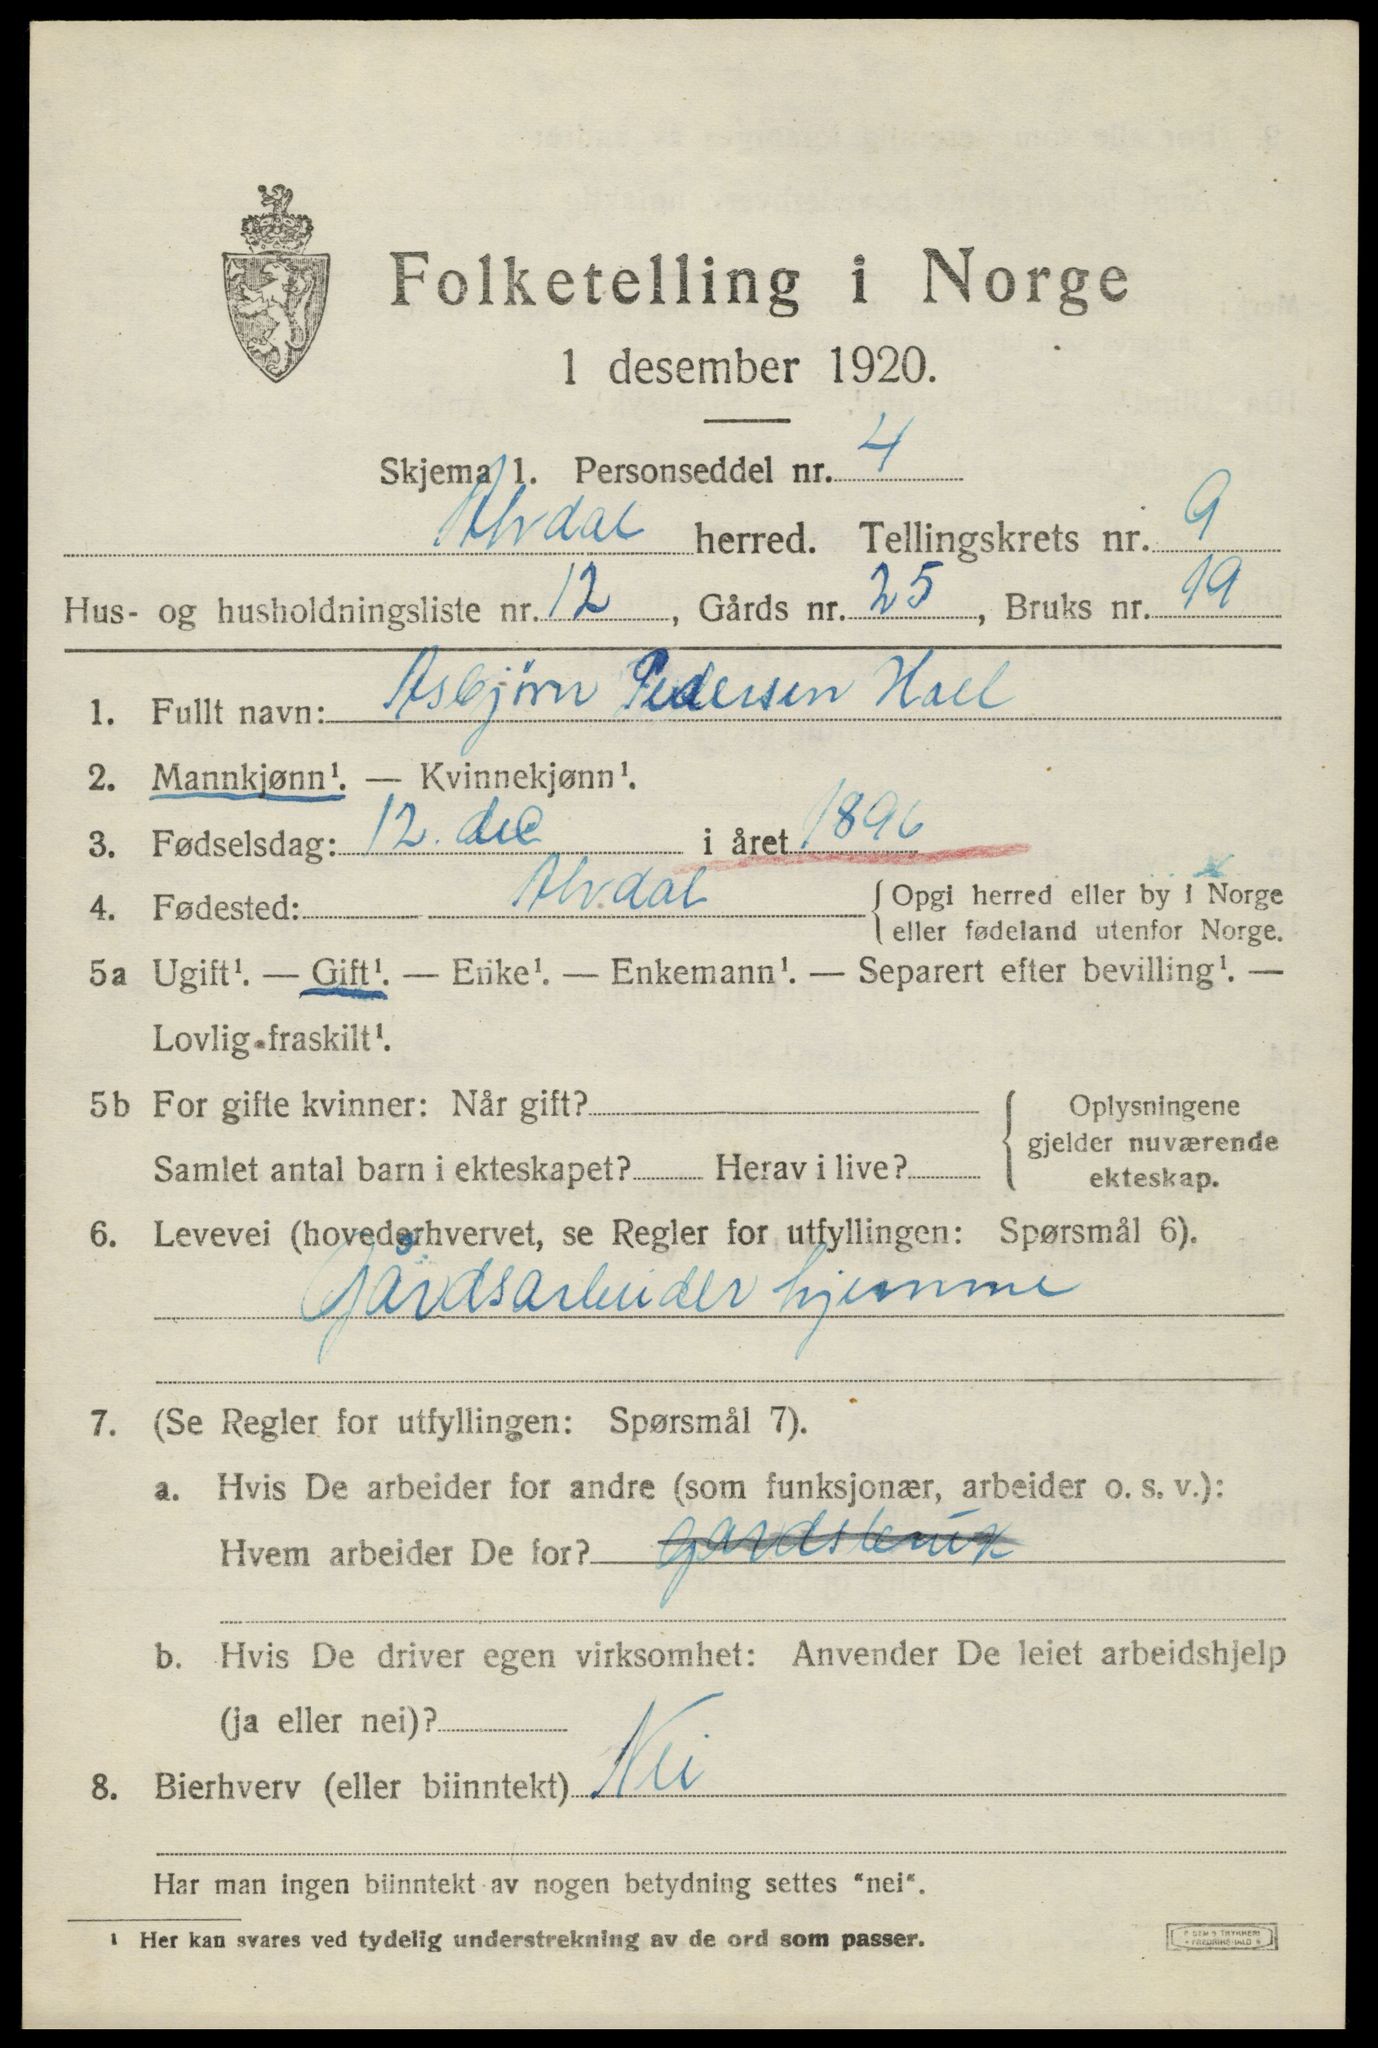 Folketelling i Norge
1 desember 1920.
Skjema 1. Personseddel nr. 4
Alvdal herred. Tellingskrets nr. 9
Hus- og husholdningsliste nr. 12, Gårds nr. 25, Bruks nr. 19
1. Fullt navn: Asbjørn Pedersen Hoel
2. Mannkjønn¹. — Kvinnekjønn¹.
3. Fødselsdag: 12. dec i året 1896
4. Fødested: Alvdal {Opgi herred eller by i Norge
eller fødeland utenfor Norge.
5a Ugift¹. — Gift¹. — Enke¹. — Enkemann¹. — Separert efter bevilling¹. —
Lovlig fraskilt¹.
5b For gifte kvinner: Når gift? { Oplysningene
gjelder nuværende
Samlet antal barn i ekteskapet? Herav i live? ekteskap.
6. Levevei (hovederhvervet, se Regler for utfyllingen: Spørsmål 6).
Gårdsarbeider hjemme
7. (Se Regler for utfyllingen: Spørsmål 7).
a. Hvis De arbeider for andre (som funksjonær, arbeider o. s. v.):
Hvem arbeider De for? gårdsbruk
b. Hvis De driver egen virksomhet: Anvender De leiet arbeidshjelp
(ja eller nei)?
8. Bierhverv (eller biinntekt) Nei
Har man ingen biinntekt av nogen betydning settes "nei".
¹ Her kan svares ved tydelig understrekning av de ord som passer.